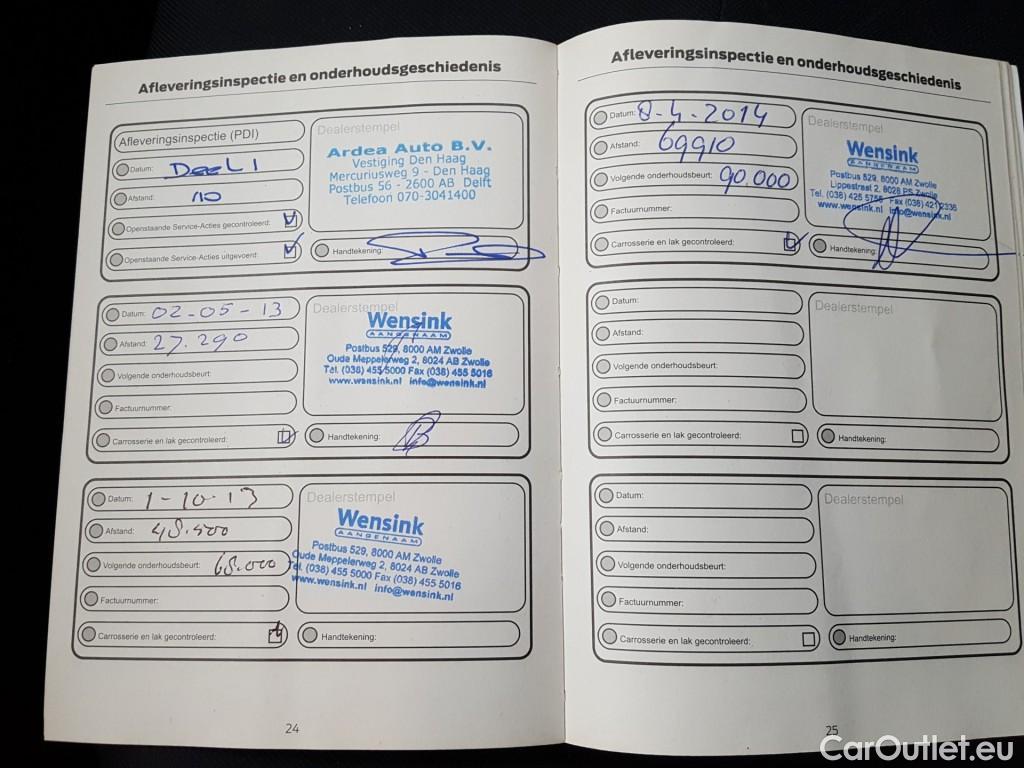 Afleveringsinspectie en onderhoudsgeschiedenis
Afleveringsinspectie (PDI)
Datum: Deel 1
Afstand: 10
Openstaande Service-Acties gecontroleerd:
Openstaande Service-Acties uitgevoerd:
Dealerstempel
Ardea Auto B.V.
Vestiging Den Haag
Mercuriusweg 9 - Den Haag
Postbus 56 - 2600 AB Delft
Telefoon 070-3041400
Handtekening:
Datum: 02-05-13
Afstand: 27.290
Volgende onderhoudsbeurt:
Factuurnummer:
Carrosserie en lak gecontroleerd:
Dealerstempel
Wensink
AANGENAAM
Postbus 529, 8000 AM Zwolle
Oude Meppelerweg 2, 8024 AB Zwolle
Tel. (038) 455 5000 Fax (038) 455 5016
www.wensink.nl info@wensink.nl
Handtekening:
Datum: 1-10-13
Afstand: 48.500
Volgende onderhoudsbeurt: 68.000
Factuurnummer:
Carrosserie en lak gecontroleerd:
Dealerstempel
Wensink
AANGENAAM
Postbus 529, 8000 AM Zwolle
Oude Meppelerweg 2, 8024 AB Zwolle
Tel. (038) 455 5000 Fax (038) 455 5016
www.wensink.nl info@wensink.nl
Handtekening:
24
Afleveringsinspectie en onderhoudsgeschiedenis
Datum: 8-4-2014
Afstand: 69910
Volgende onderhoudsbeurt: 90.000
Factuurnummer:
Carrosserie en lak gecontroleerd:
Dealerstempel
Wensink
AANGENAAM
Postbus 529, 8000 AM Zwolle
Lippestraat 2, 8028 PS Zwolle
Tel. (038) 425 5756 Fax (038) 4212336
www.wensink.nl info@wensink.nl
Handtekening:
Datum:
Afstand:
Volgende onderhoudsbeurt:
Factuurnummer:
Carrosserie en lak gecontroleerd:
Dealerstempel
Handtekening:
Datum:
Afstand:
Volgende onderhoudsbeurt:
Factuurnummer:
Carrosserie en lak gecontroleerd:
Dealerstempel
Handtekening:
25
CarOutlet.eu